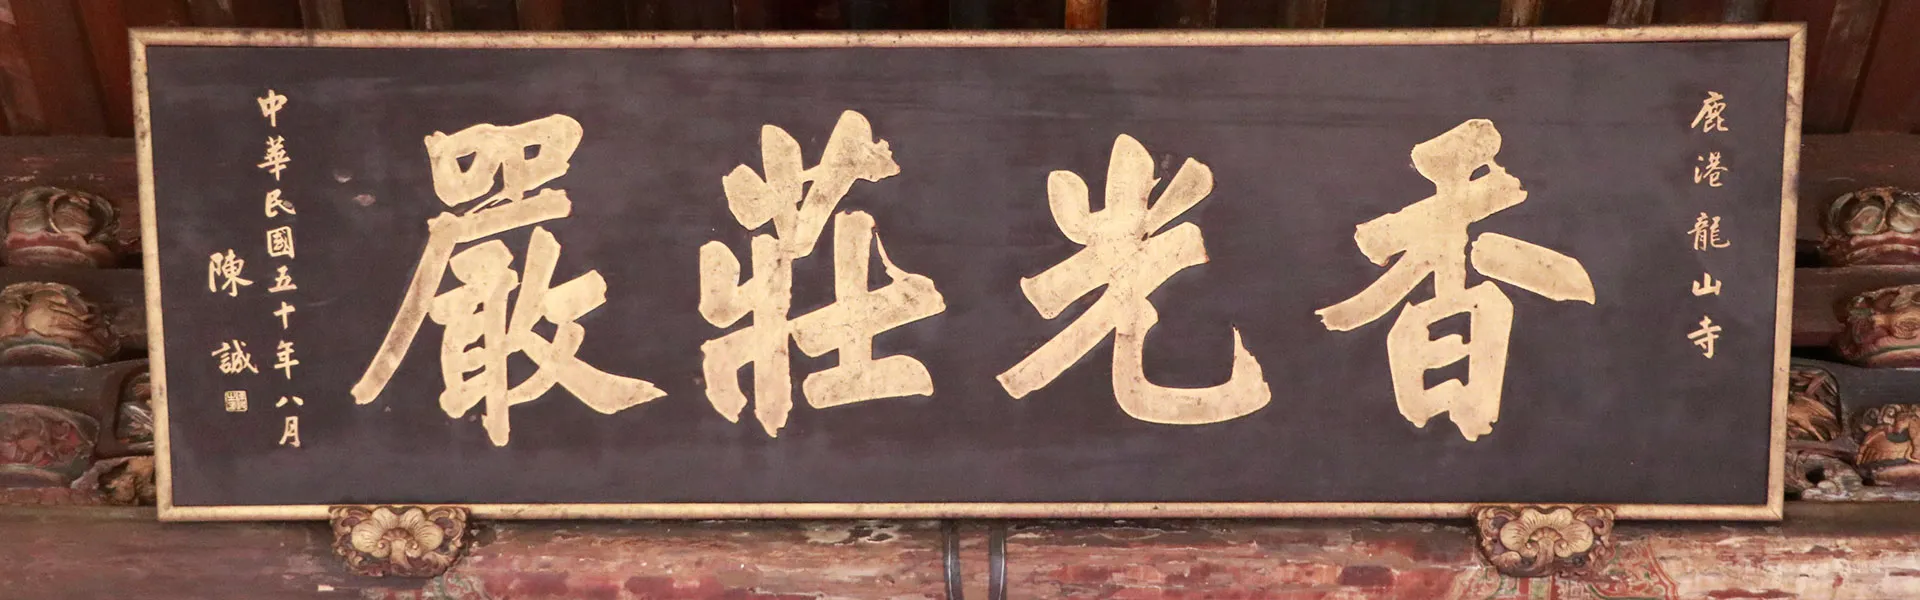 鹿港龍山寺
香光莊嚴
中華民國五十年八月
陳誠